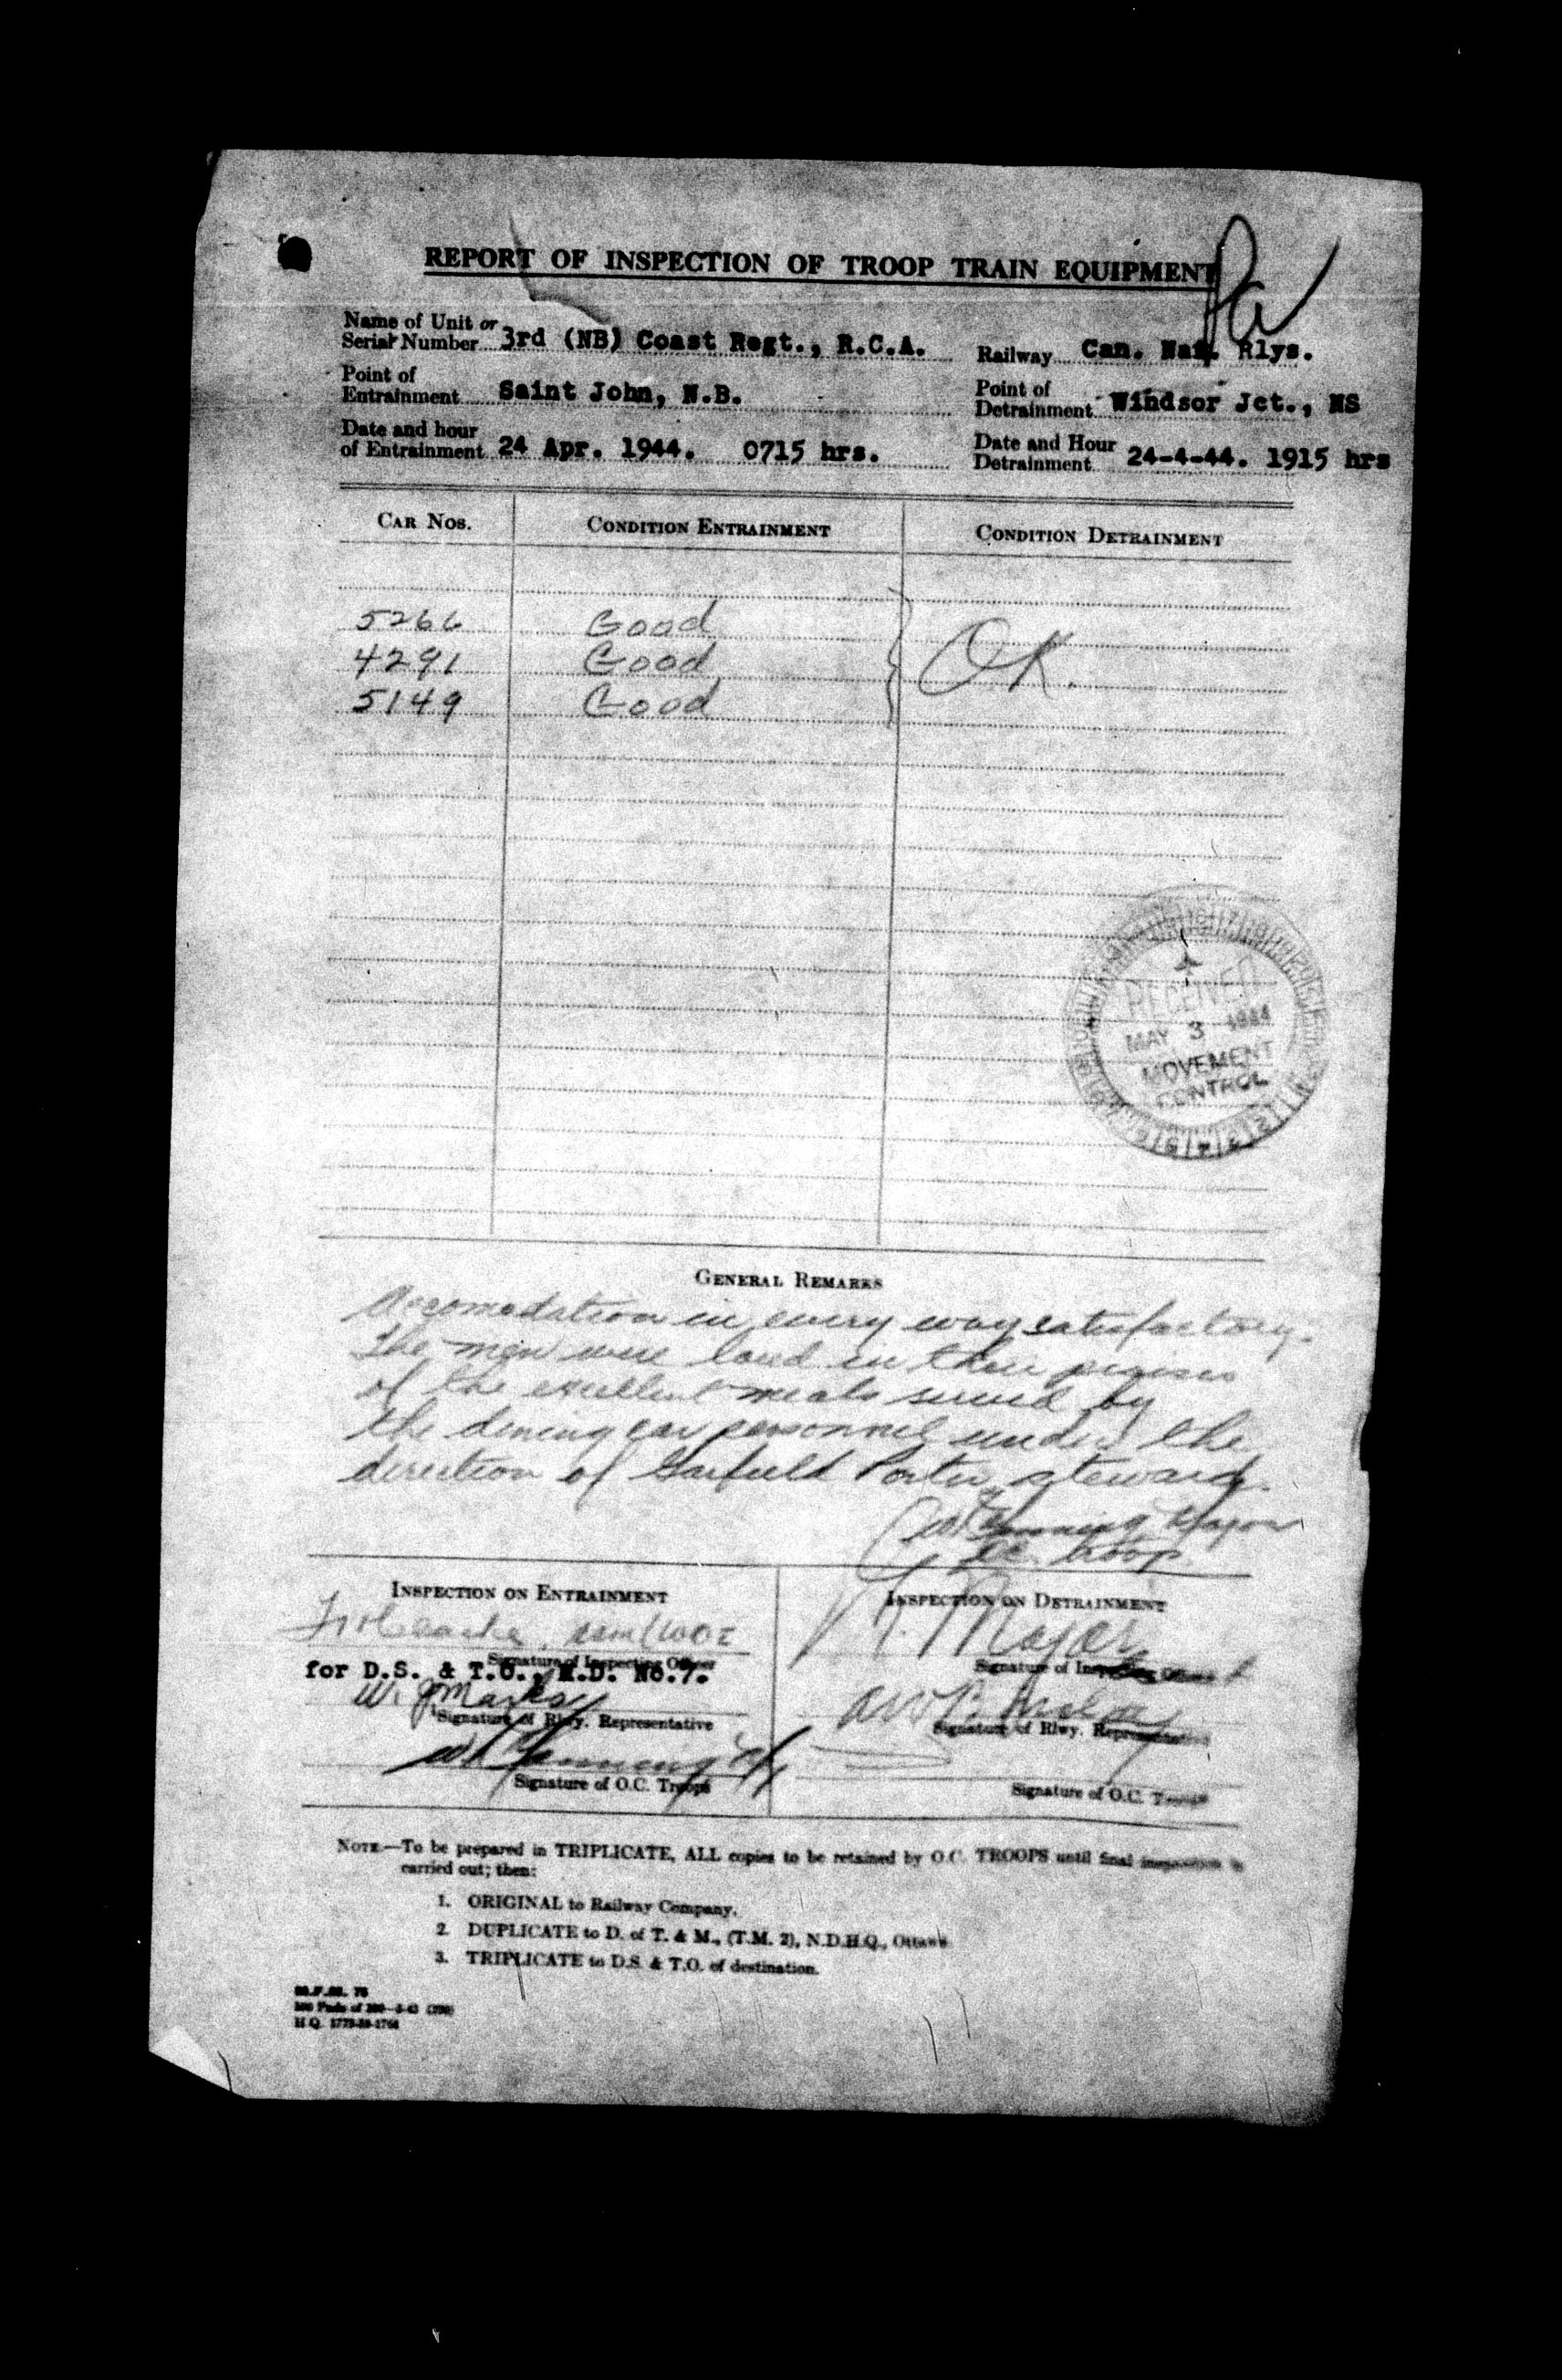 REPORT OF INSPECTION OF TROOP TRAIN EQUIPMENT
Name of Unit or
Serial Number 3rd (NB) Coast Regt., R.C.A. Railway Can. Nat. Rlys.
Point of Entrainment Saint John, N.B. Point of Detrainment Windsor Jct., NS
Date and hour of Entrainment 24 Apr. 1944. 0715 hrs. Date and Hour Detrainment 24-4-44. 1915 hrs
CAR NOS. CONDITION ENTRAINMENT CONDITION DETRAINMENT
5266 Good
4291 Good OK.
5149 Good
RECEIVED
MAY 3 1944
MOVEMENT
CONTROL
GENERAL REMARKS
Accomodation in every way satisfactory.
The men were loud in their praises
of the excellent meals served by
the dining car personnel under the
direction of Garfield Porter, steward.
Major
OC Troop
INSPECTION ON ENTRAINMENT INSPECTION ON DETRAINMENT
Signature of Inspecting Officer Signature of Inspecting Officer
for D.S. & T.O., M.D. No.7.
W. J. Marks
Signature of Rlwy. Representative Signature of Rlwy. Representative
Signature of O.C. Troops Signature of O.C. Troops
NOTE.—To be prepared in TRIPLICATE, ALL copies to be retained by O.C. TROOPS until final inspection is
carried out; then:
1. ORIGINAL to Railway Company.
2. DUPLICATE to D. of T. & M., (T.M. 2), N.D.H.Q., Ottawa
3. TRIPLICATE to D.S. & T.O. of destination.
H.Q. 1772-39-1764